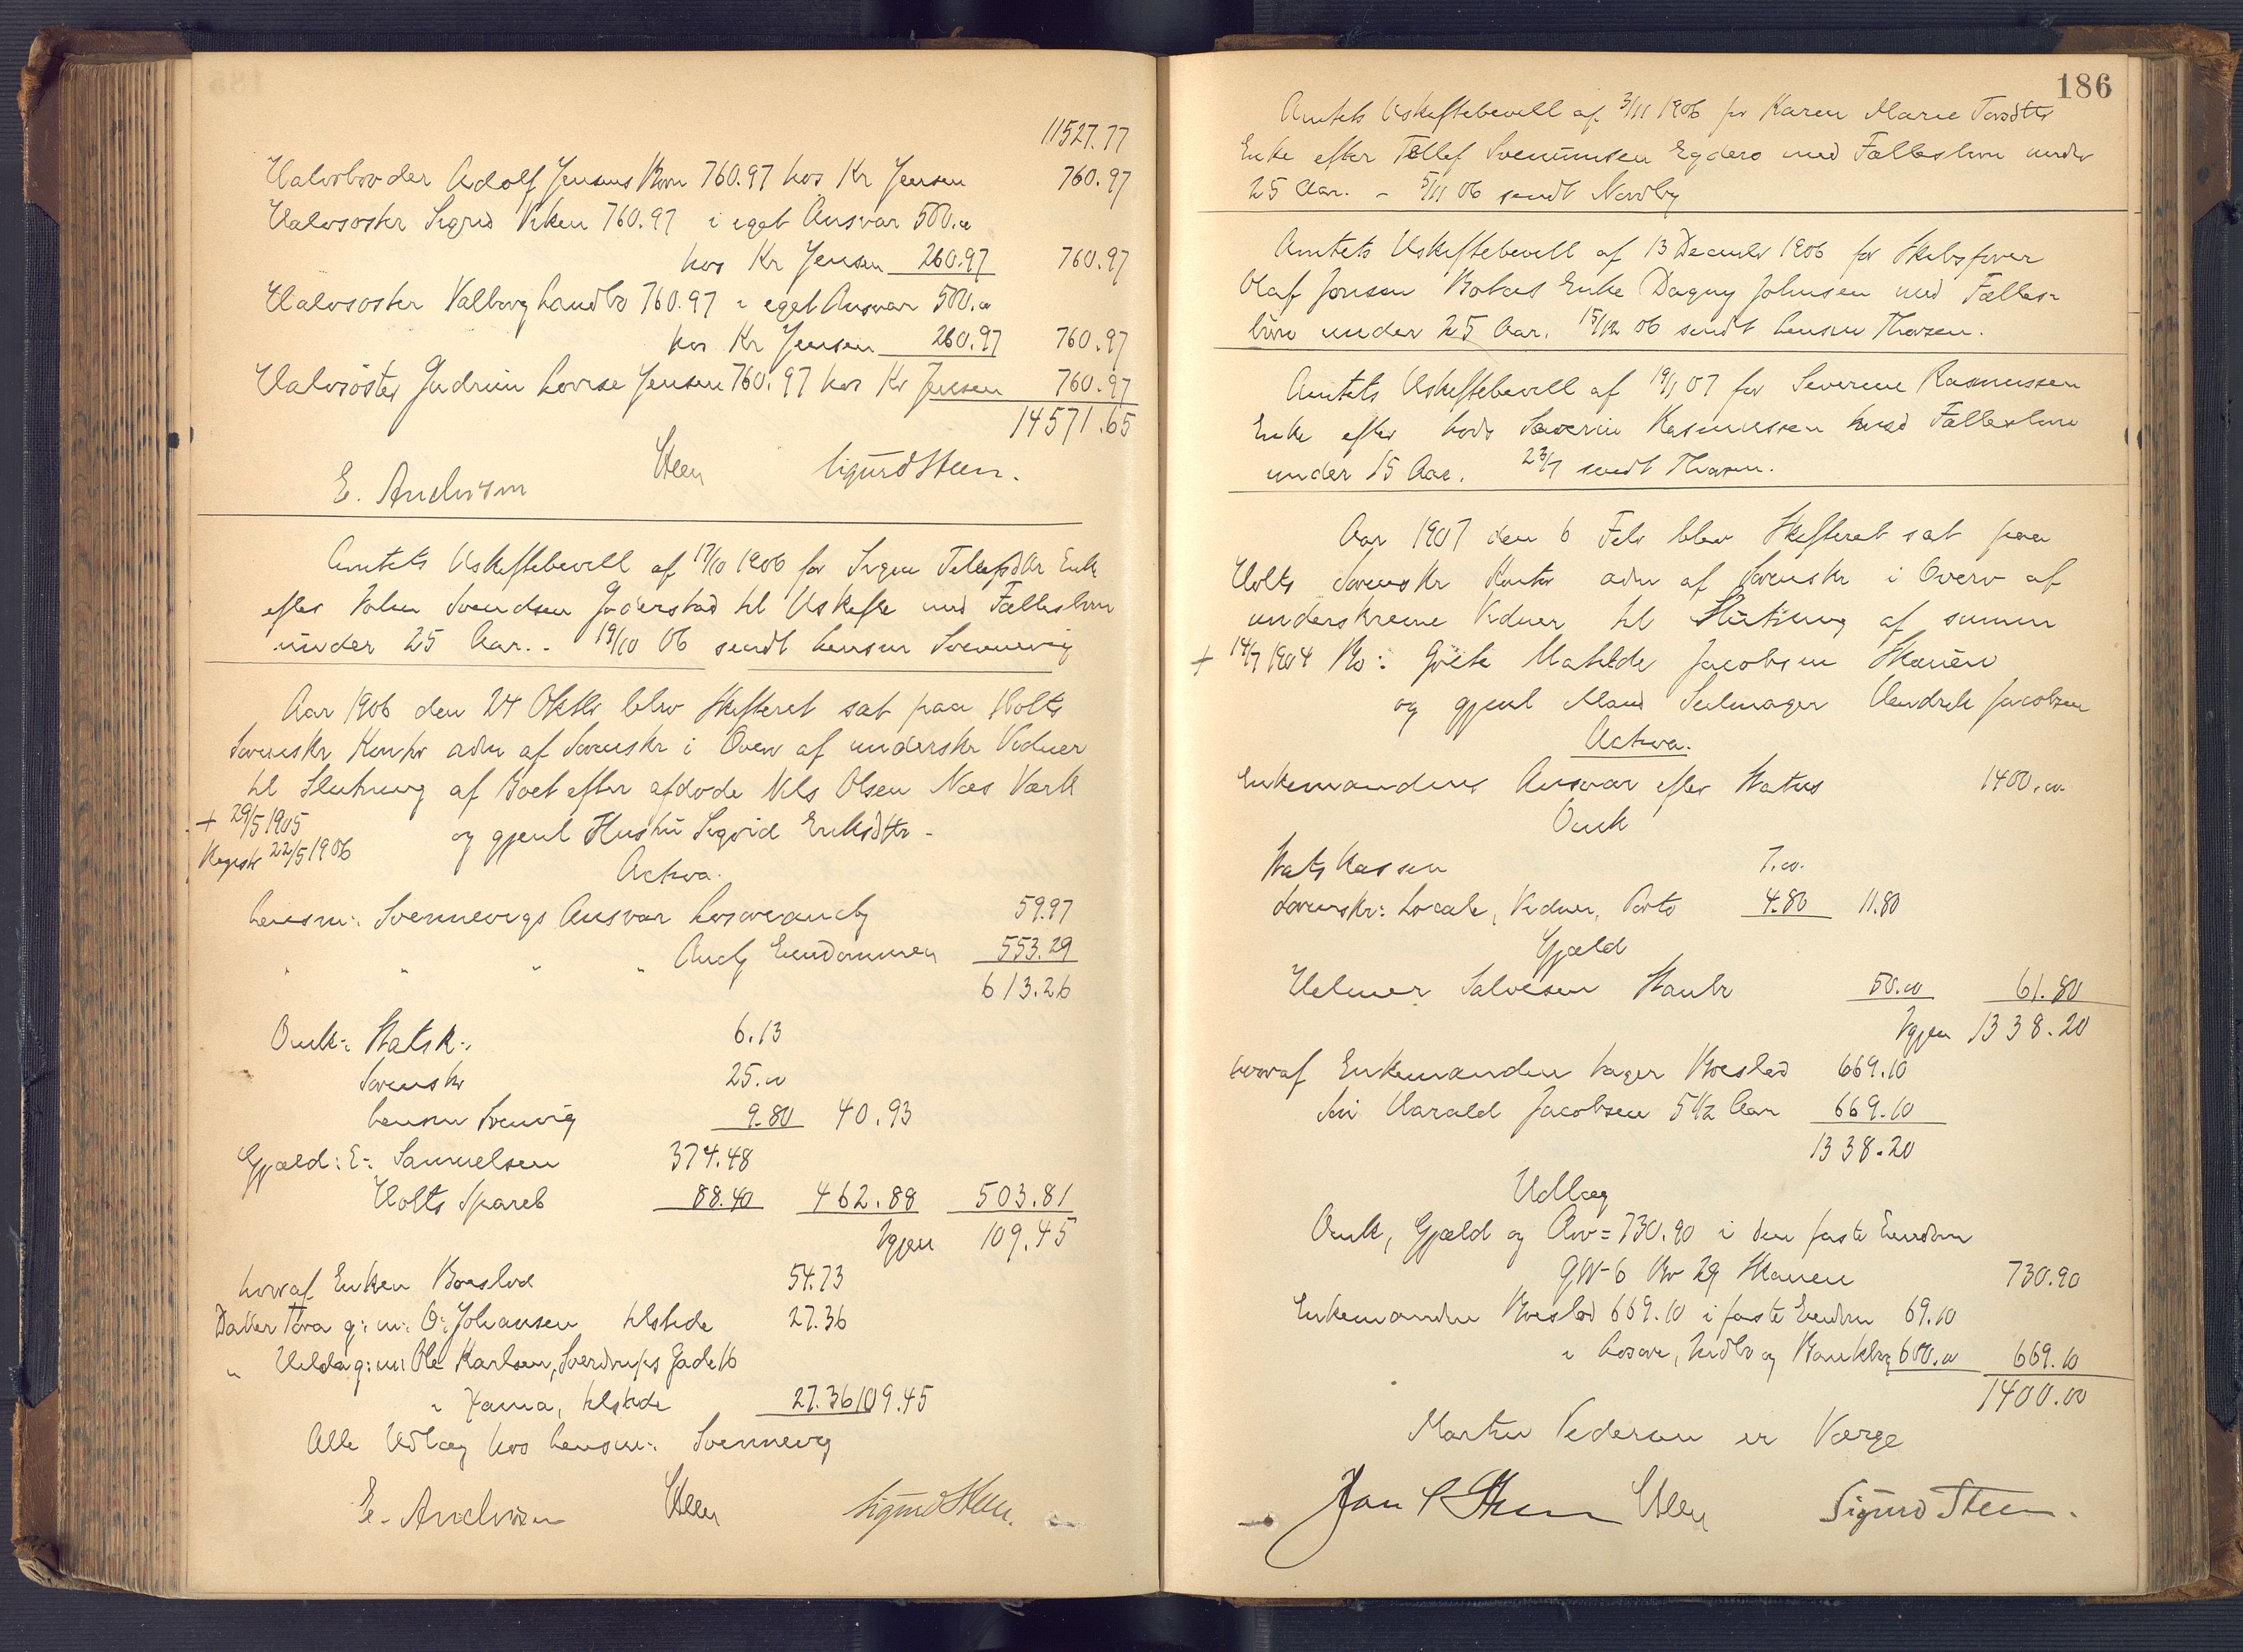 11527.77
Halvbroder Adolf Jensens Børn 760.97 hos Kr Jensen 760.97
Halvsøster Sigrid Viken 760.97 i eget Ansvar 500.00
hos Kr Jensen 260.97 760.97
Halvsøster Valborg Lundbo 760.97 i eget Ansvar 500.00
hos Kr Jensen 260.97 760.97
Halvsøster Gudrun Lovise Jensen 760.97 hos Kr Jensen 760.97
14571.65
E. Andersen Steen Sigurd Steen.
Amtets Uskiftebevill af 17/10 1906 for Enke
efter Johan Svendsen Gjderstad til Uskifte med Fællesbørn
under 25 Aar. - 19/10 06 sendt Lensm Svennevig
Aar 1906 den 24 Oktbr blev Skifteret sat paa Holts
Sorenskr Kontor adm af Sorenskr i Overv af underskr Vidner
til Slutning af Boet efter afdøde Nils Olsen Næs Værk
+ 29/5 1905
og gjenl Hustru Sigrid Eriksdtr -
Registr 22/5 1906
Activa.
Lensm: Svennevigs Ansvar Løsøreaucty 59.97
" " " " Auct Eiendommen 553.29
613.26
Omk: Statsk: 6.13
Sorenskr 25.00
Lensm Svenvig 9.80 40.93
Gjæld: E: Samuelsen 374.48
Holts Spareb 88.40 462.88 503.81
Igjen 109.45
hvoraf Enken Boeslod 54.73
Datter Tora g: m: O: Johansen tilstede 27.36
" Hilda g: m: Ole Karlsen, Sverdrups Gade 16
i tilstede 27.36 109.45
Alle Udlæg hos Lensm: Svennevig
E. Andersen Steen Sigurd Steen.
186
Amtets Uskiftebevill af 3/11 1906 for Karen Marie Torsdtr
Enke efter Tellef Svenumsen Egdero med Fællesbørn under
25 Aar. - 5/11 06 sendt Nordby
Amtets Uskiftebevill af 13 December 1906 for Skibsfører
Olaf Jonsen Enke Dagny Johnsen med Fælles-
børn under 25 Aar. 15/12 06 sendt Lensm Thorsen.
Amtets Uskiftebevill af 19/1 07 for Severine Rasmussen
Enke efter Lods Severin Rasmussen med Fællesbørn
under 15 Aar. 23/1 sendt Thorsen.
Aar 1907 den 6 Feb blev Skifteret sat paa
Holts Sorenskr Kontor adm af Sorenskr i Overv af
underskrevne Vidner til Slutning af summ
+ 14/7 1904 Bo: Matilde Jacobsen Skauen
og gjenl Mand Seilmager Hendrik Jacobsen
Activa.
Enkemandens Ansvar efter Status 1400.00
Omk
Stats Kassen 7.00
Sorenskr: Locale, Vidner, Porto 4.80 11.80
Gjæld
Helmer Salvesen Staubø 50.00 61.80
Igjen 1338.20
hvoraf Enkemanden tager Boeslod 669.10
Søn Harald Jacobsen 5 1/2 Aar 669.10
1338.20
Udlæg
Omk, Gjæld og Arv = 730.90 i den faste Eiendom
GN- 6 Br 29 Skauen 730.90
Enkemanden Boeslod 669.10 i faste Eiendom 69.10
i Løsøre, Indbo og Bankbog 600.00 669.10
1400.00
Martin Pedersen er Værge
Jan Steen Sigurd Steen.